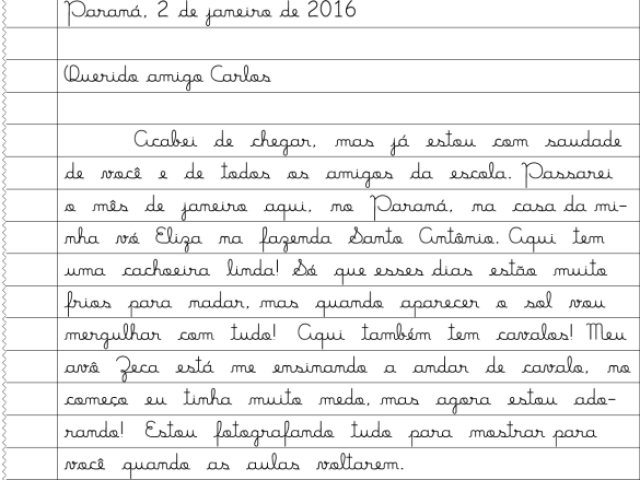 Paraná, 2 de janeiro de 2016
Querido amigo Carlos
Acabei de chegar, mas já estou com saudade
de você e de todos os amigos da escola. Passarei
o mês de janeiro aqui, no Paraná, na casa da mi-
nha vó Eliza na fazenda Santo Antônio. Aqui tem
uma cachoeira linda! Só que esses dias estão muito
frios para nadar, mas quando aparecer o sol vou
mergulhar com tudo! Aqui também tem cavalos! Meu
avô Zeca está me ensinando a andar de cavalo, no
começo eu tinha muito medo, mas agora estou ado-
rando! Estou fotografando tudo para mostrar para
você quando as aulas voltarem.